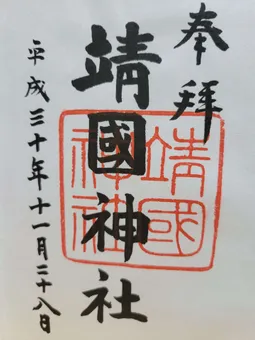 奉拝
靖國神社
靖國神社
平成三十年十一月二十八日